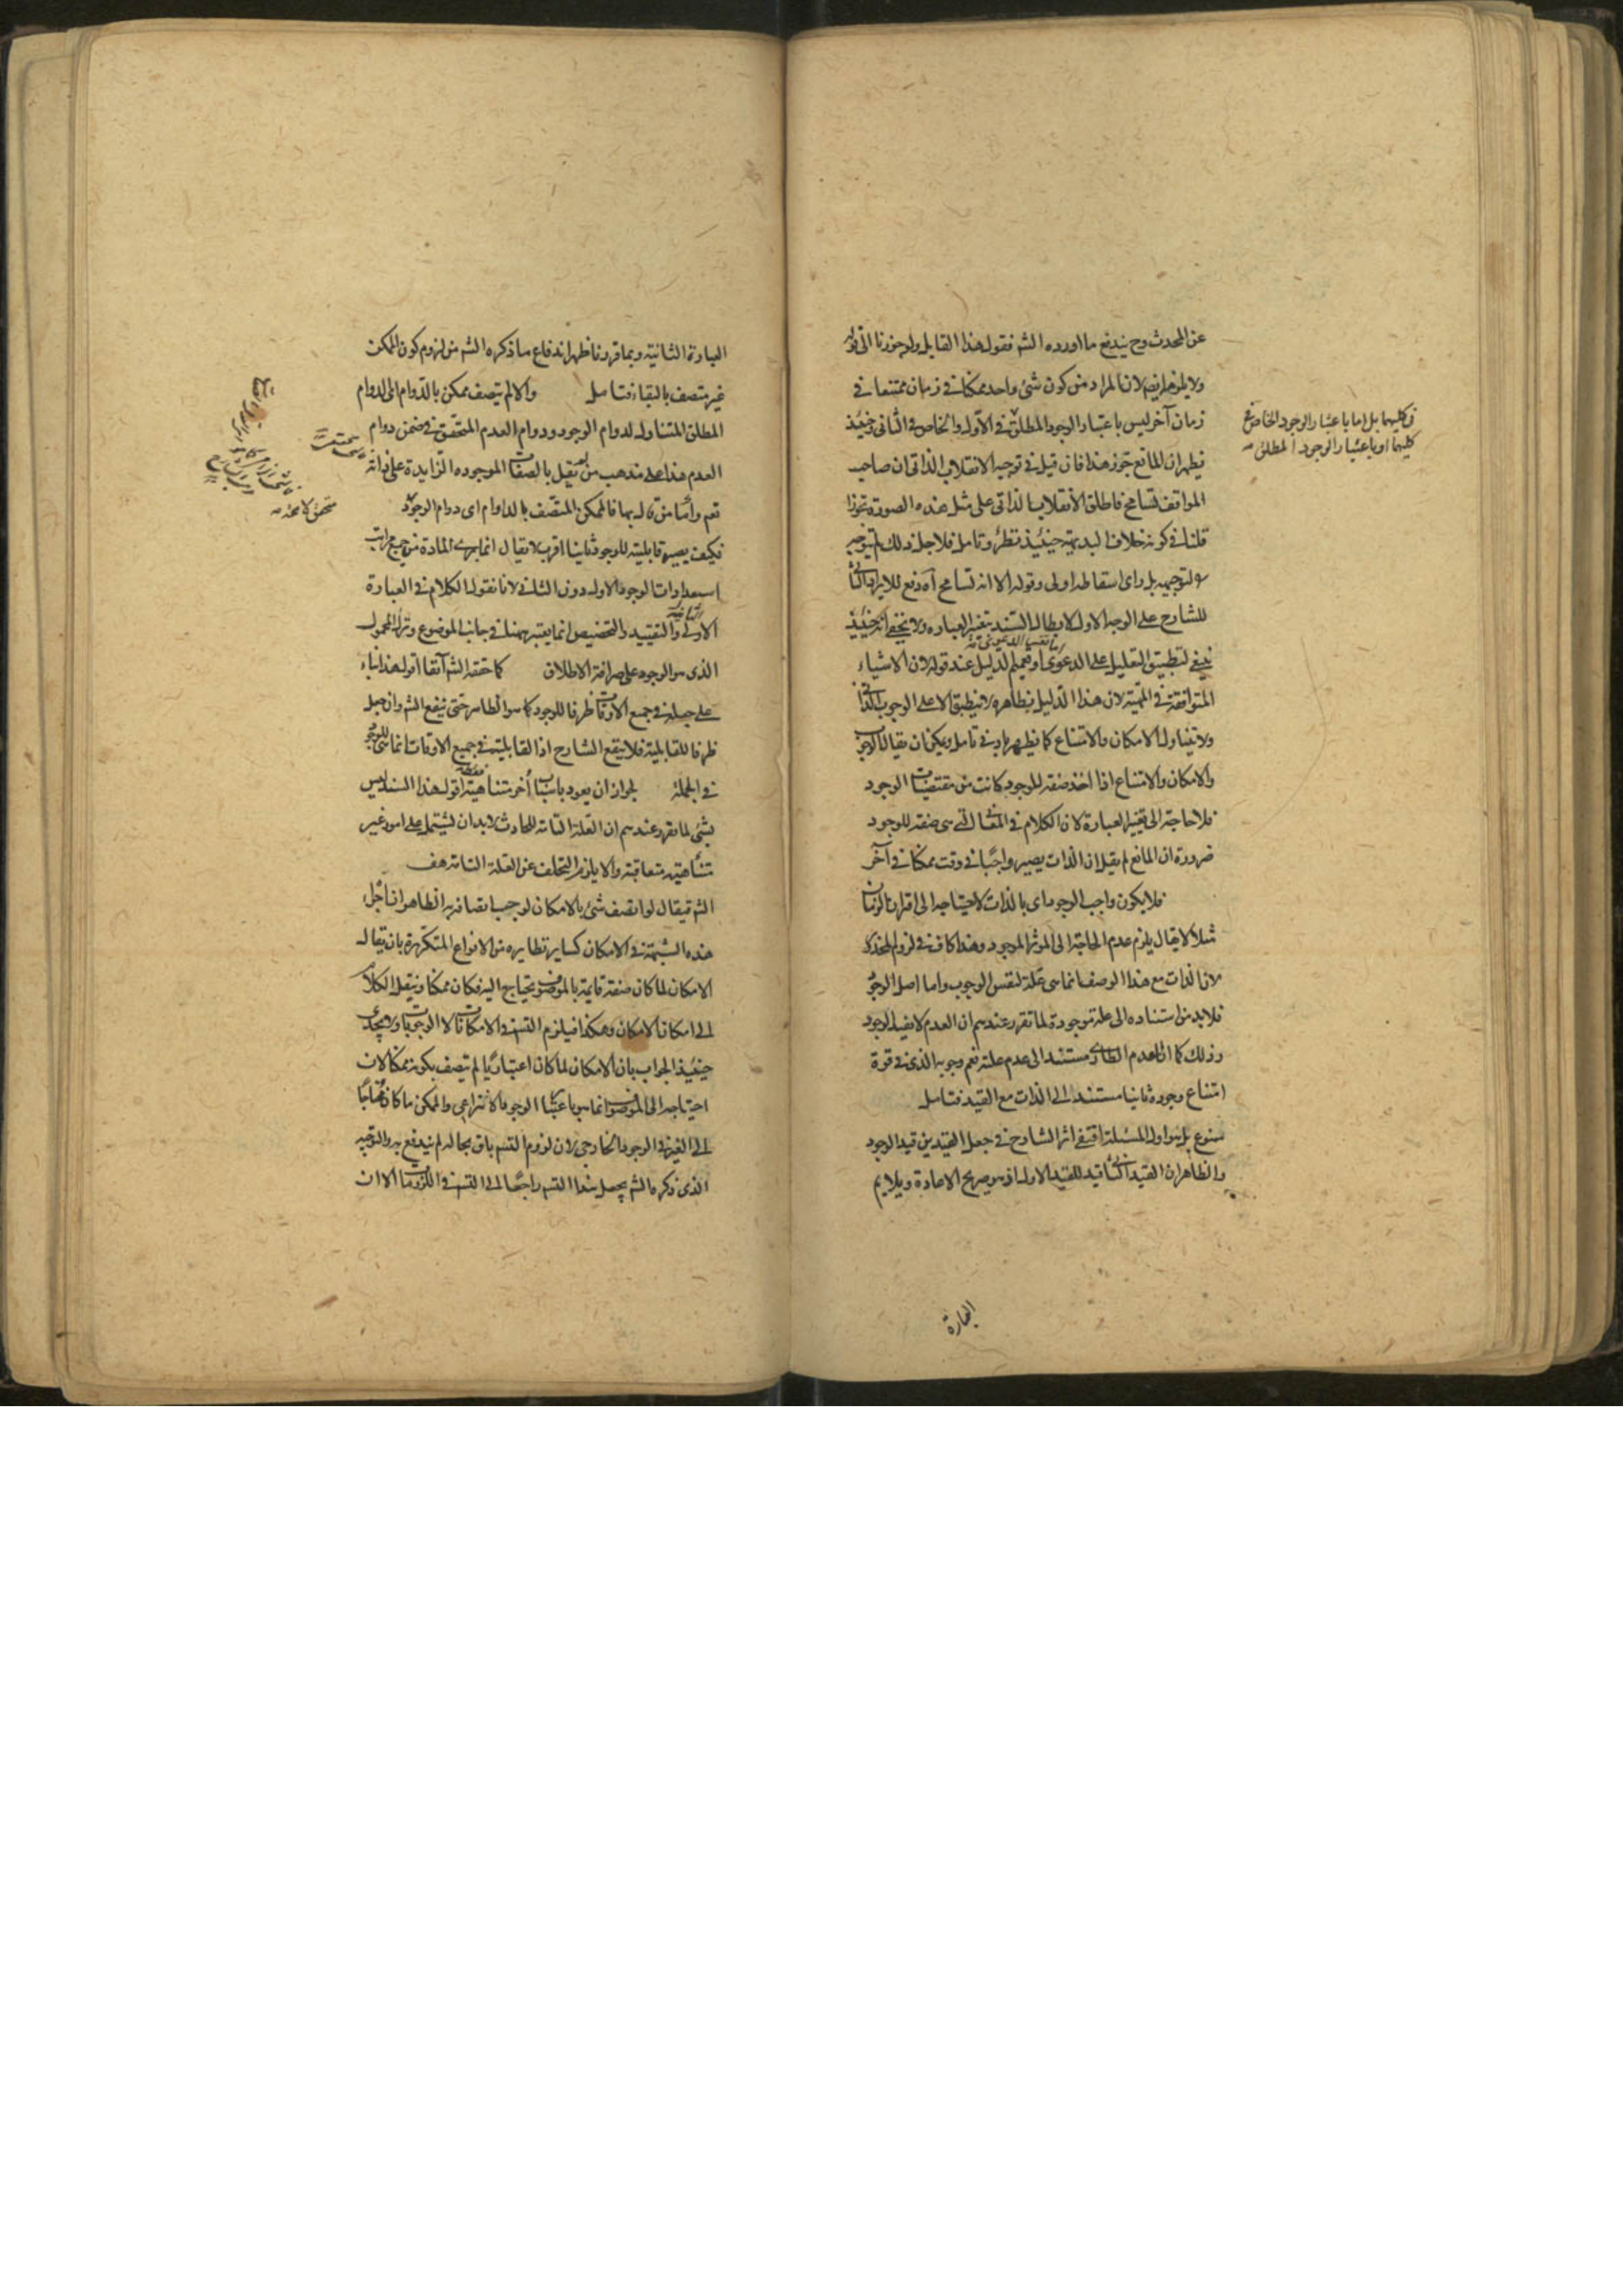 عن المحدث وح يندفع ما اورده الشه فقوله هذا القايل ولو جوزنا الى قوله
ولا يلزم لان المراد من كون شئ واحد ممكنا في زمان ممتنعا في
زمان آخر ليس باعتبار الوجود المطلق في الاول والخاص في الثانى وحينئذ
فيظهر ان المانع جوز هذا فان قيل في توجيه الانقلاب الذاتى ان صاحب
المواقف تسامح فاطلق الانقلاب الذاتى على مثل هذه الصورة تجوزا
قلنا في كونه خلاف البديهة حينئذ نظر وتامل فلاجل ذلك لم يتوجه
التوجيه بل راى اسقاطه اولى وقوله الا انه تسامح آه دفع للايراد الثانى
للشارح على الوجه الاول لابطال السند بتغير العبارة ولا يخفى انه حينئذ
ينبغى تطبيق التعليل على الدعوى او تعميم الدليل عند قوله لان الاشياء
المتوافقة في المهية لان هذا الدليل بظاهره لا ينطبق الا على الوجوب الذاتى
ولا يتناول الامكان والامتناع كما يظهر بادنى تامل ويمكن ان يقال الوجوب
والامكان والامتناع اذا اخذ صفة للوجود كانت من مقتضيات الوجود
فلا حاجة الى تغيير العبارة لان الكلام في التى هى صفة للوجود
ضرورة ان المانع لم يقل ان الذات يصير واجبا في وقت ممكنا في آخر
فلا يكون واجب الوجود اى بالذات لاحتياجه الى اقتران الزمان
مثلا لا يقال يلزم عدم الحاجة الى المؤثر الموجود وهذا كاف في لزوم المحذور
لان الذات مع هذا الوصف انما هى علة لنفس الوجوب واما اصل الوجود
فلابد من استناده الى علة موجودة لما تقرر عندهم ان العدم لا يفيد الوجود
وذلك كما ان العدم الطارى مستند الى عدم علته نعم وجوبه الذى في قوة
امتناع وجوده ثانيا مستند الى الذات مع القيد فتامل
ممنوع بل هو اول المسئلة اقتفى اثر الشارح في جعل القيدين قيد الوجود
والظاهر ان القيد الثانى قيد للقيد الاول اذ هو صريح الاعادة ويلايم
في كليهما بل اما باعتبار الوجود الخاص في
كليهما او باعتبار الوجود المطلق
العبارة
العبارة الثانية وبما قررنا ظهر اندفاع ما ذكره الشه من لزوم كون الممكن
غير متصف بالبقاء فتامل والا لم يتصف ممكن بالدوام اى الدوام
المطلق المتناول لدوام الوجود ودوام العدم المتحقق في ضمن دوام
العدم هذا على مذهب من لم يقل بالصفات الموجودة الزايدة على ذاته
نعم واما من قال بها فالممكن المتصف بالدوام اى دوام الوجود
فكيف يصير قابليته للوجود ثانيا اقرب لا يقال انما المادة من جميع مراتب
استعدادات الوجود الاول دون الثانى لانا نقول الكلام في العبارة
الاولى والتقييد والتخصيص انما يعتبر هنا في جانب الموضوع وترك المحمول
الذى هو الوجود على صرافة الاطلاق كما حققه الشه آنفا اقول هذا بناء
على جعله في جميع الاوقات ظرفا للوجود كما هو الظاهر حتى ينفع الشه وان جعل
ظرفا للقابلية فلا ينفع الشارح اذ القابلية في جميع الاوقات انما هى للوجود
في الجملة لجواز ان يعود باسباب أخر متناهية اقول هذا السند ليس
بشئ لما تقرر عندهم ان العلة التامة للحادث لابد ان يشتمل على امور غير
متناهية متعاقبة والا يلزم التخلف عن العلة التامة هف
الشه فيقال لو اتصف شئ بالامكان لوجب اتصافه به الظاهر اجراء
هذه الشبهة في الامكان كساير نظايره من الانواع المتكررة بان يقال
الامكان لما كان صفة قايمة بالموصوف يحتاج اليه فكان ممكنا وننقل الكلام
الى امكان الامكان وهكذا فيلزم التسه في الامكانات لا الوجوبات ولا يجدى
حينئذ الجواب بان الامكان لما كان اعتباريا لم يتصف بكونه ممكنا لان
احتياجه الى الموصوف انما هو باعتبار الوجود الانتزاعى والممكن ما كان محتاجا
الى الغير في الوجود الخارجى لان لزوم التسه باق بحاله لم يندفع به والتوجيه
الذى ذكره الشه يجعل هذا التسه راجعا الى التسه في اللزومات الا ان